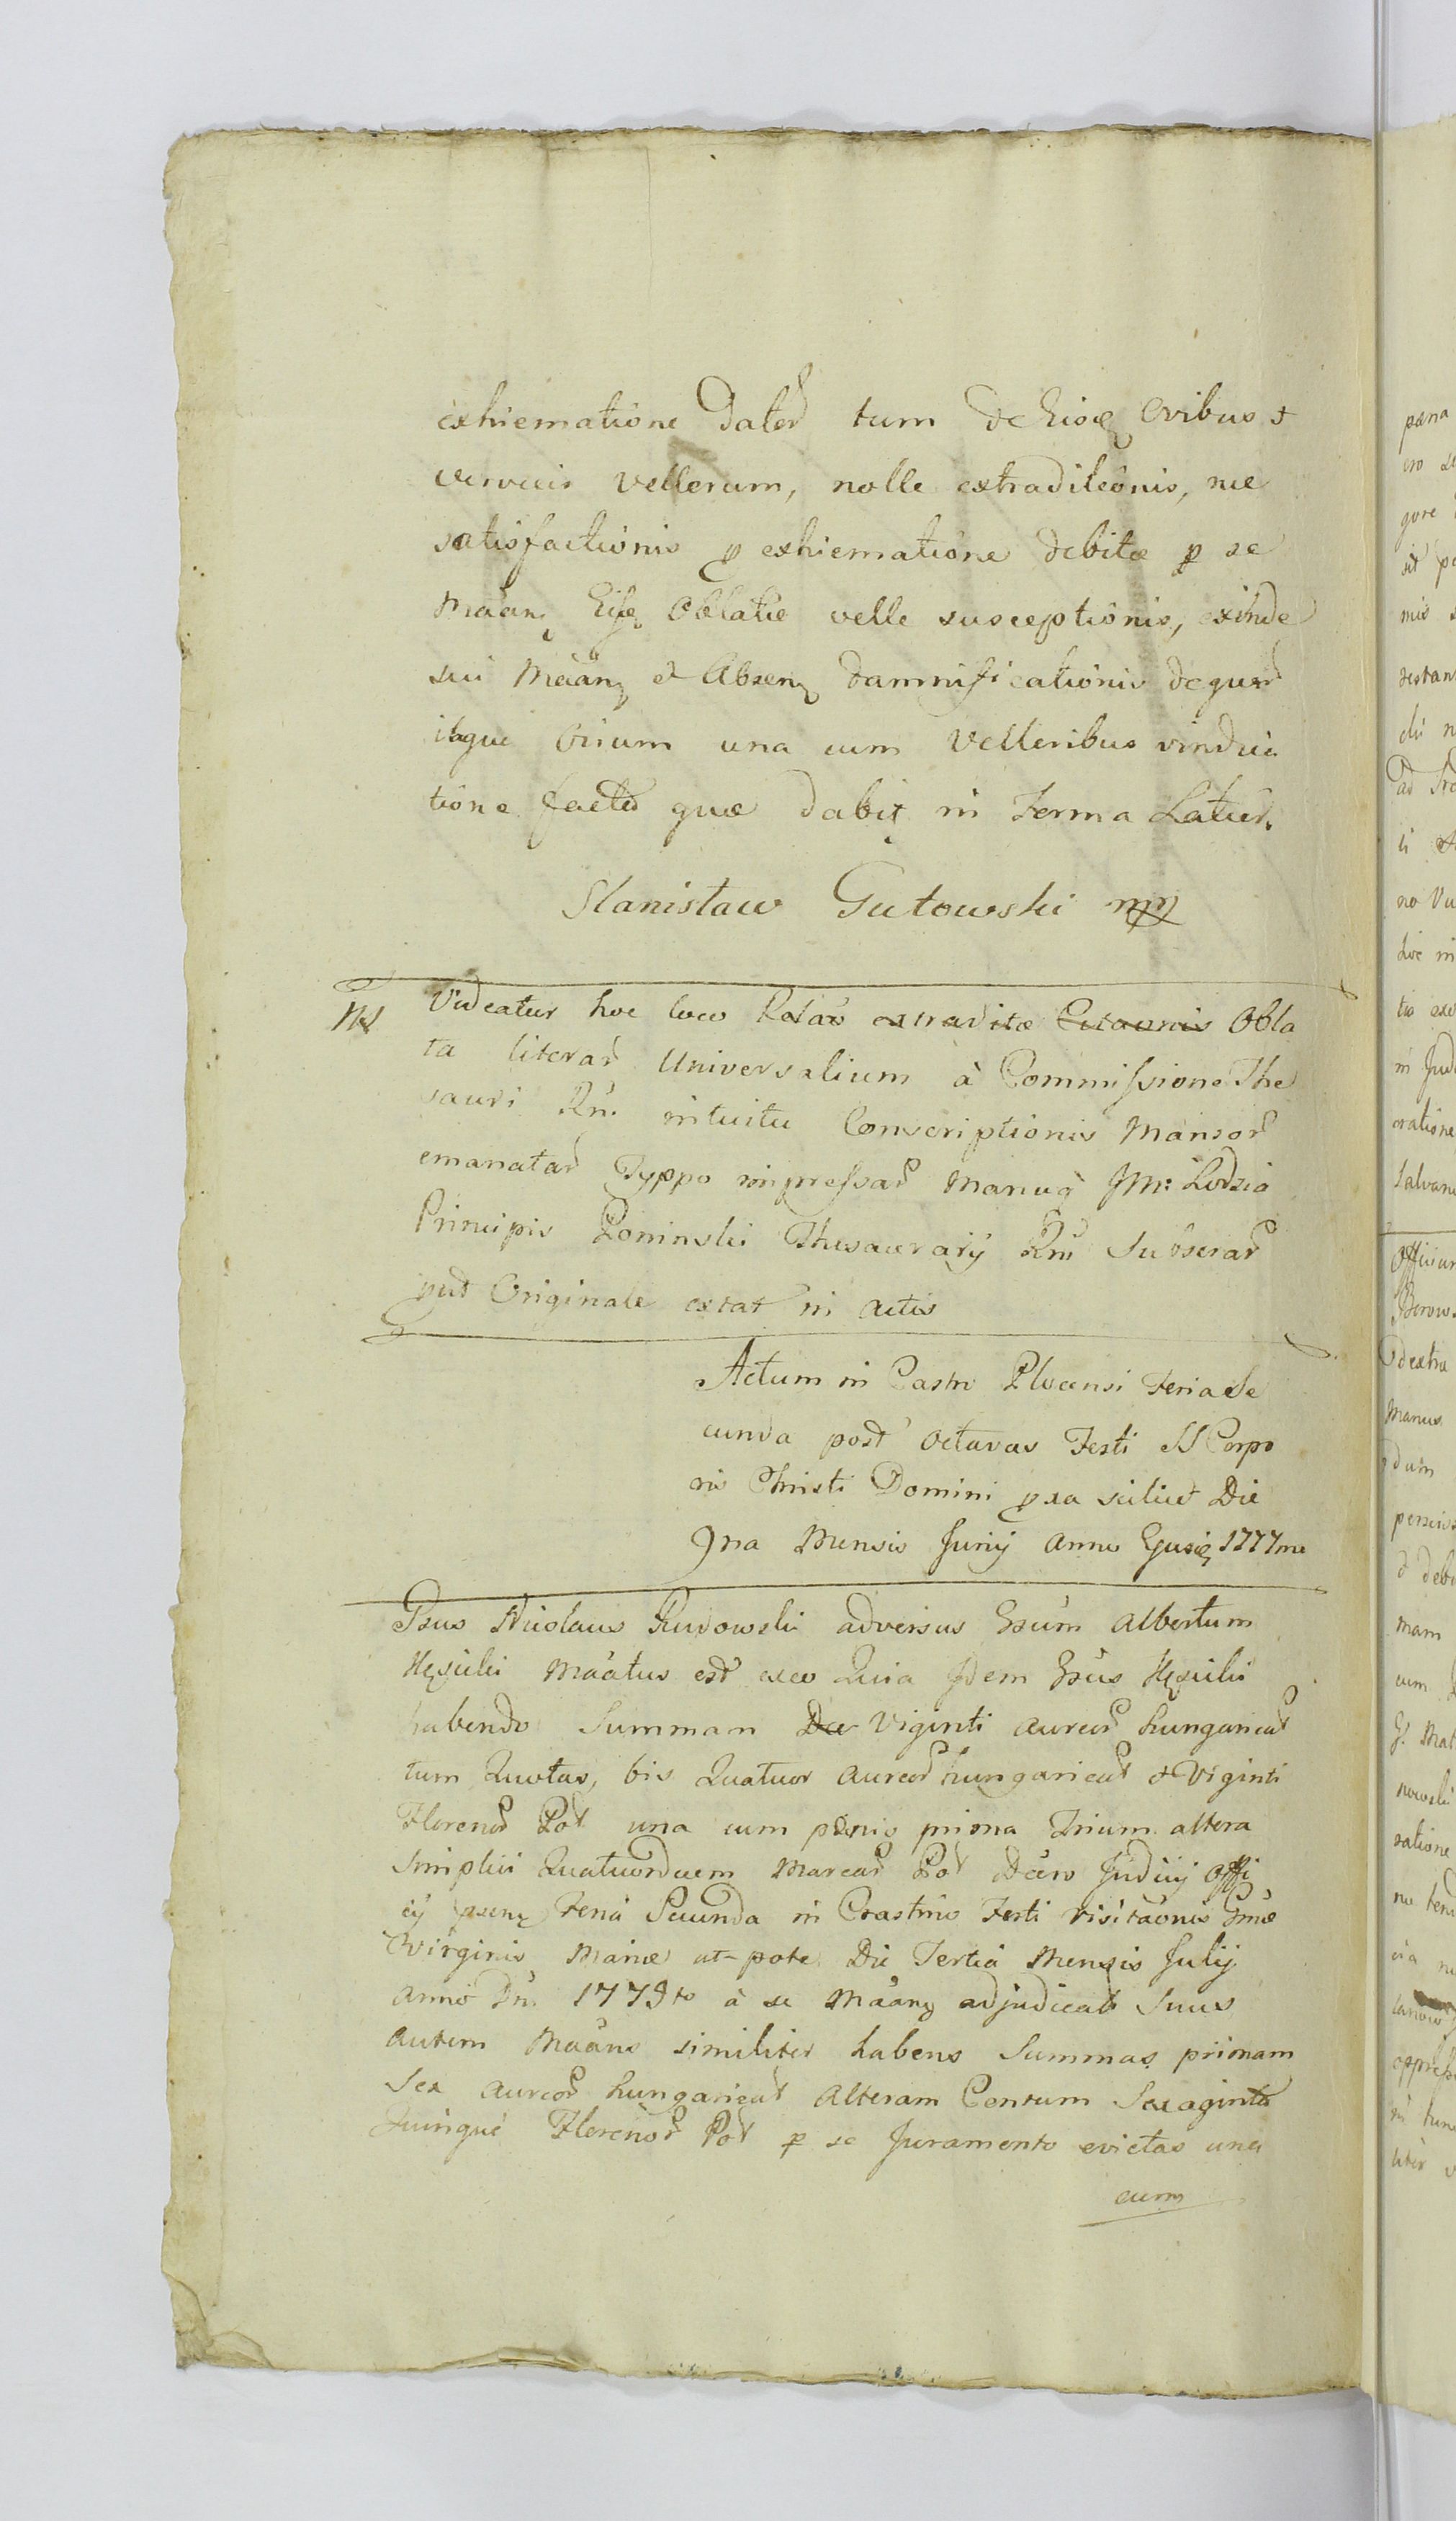 exhiematione dator tum de Eisq ovibus &
vervecis vellerum, nolle extraditionis, nec
satisfactionis p exhiematione debitæ p se
Māan Eisq Oblatæ velle susceptionis, exinde
sui Māanq et Absenq damnificationis de quor
itaque Ovium una cum Velleribus vindica
tione facta quæ dabit in Forma Latior.
Stanisław Gutowski mp
NB Videatur hoc loco extraditæ Obla
ta literar Universalium à Commissione The
sauri Rni intuitu Conscriptionis Mansor
emanatar Typpo impressar Manuq JM: Lodzia
Principis Poninski Thesaurarij Rni Subscrar
put Originale extat in actis
Actum in Castro Plocensi Feria Se
cunda post Octavas Festi SS Corpo
ris Christi Domini pxa scilicet Die
9na Mensis Junij Anno Ejusq 1777mo
Psus Nicolaus adversus Gsum Albertum
Męsicki Māatus est exeo Quia Idem Gsus Męsicki
habendo Summam Viginti aureor hungarical
tum Quotas, bis Quatuor aureor hungarical & Viginti
Florenor Pol una cum pænis prima Trium altera
Simplici Quatuordecem Marcar Pol Decro Judicij Offi
cij psenq Feria Secunda in Crastino Festi Visitaonis Gmæ
Virginis Mariæ ut-pote Die Tertia Mensis Julij
Anno Dni 177 à se Māanq adjudicat Suus
autem Māans similiter habens Summas primam
Sex aureor hungarical Alteram Centum Sexaginta
Quinque Florenor Pol p se Juramento evictas una
cum